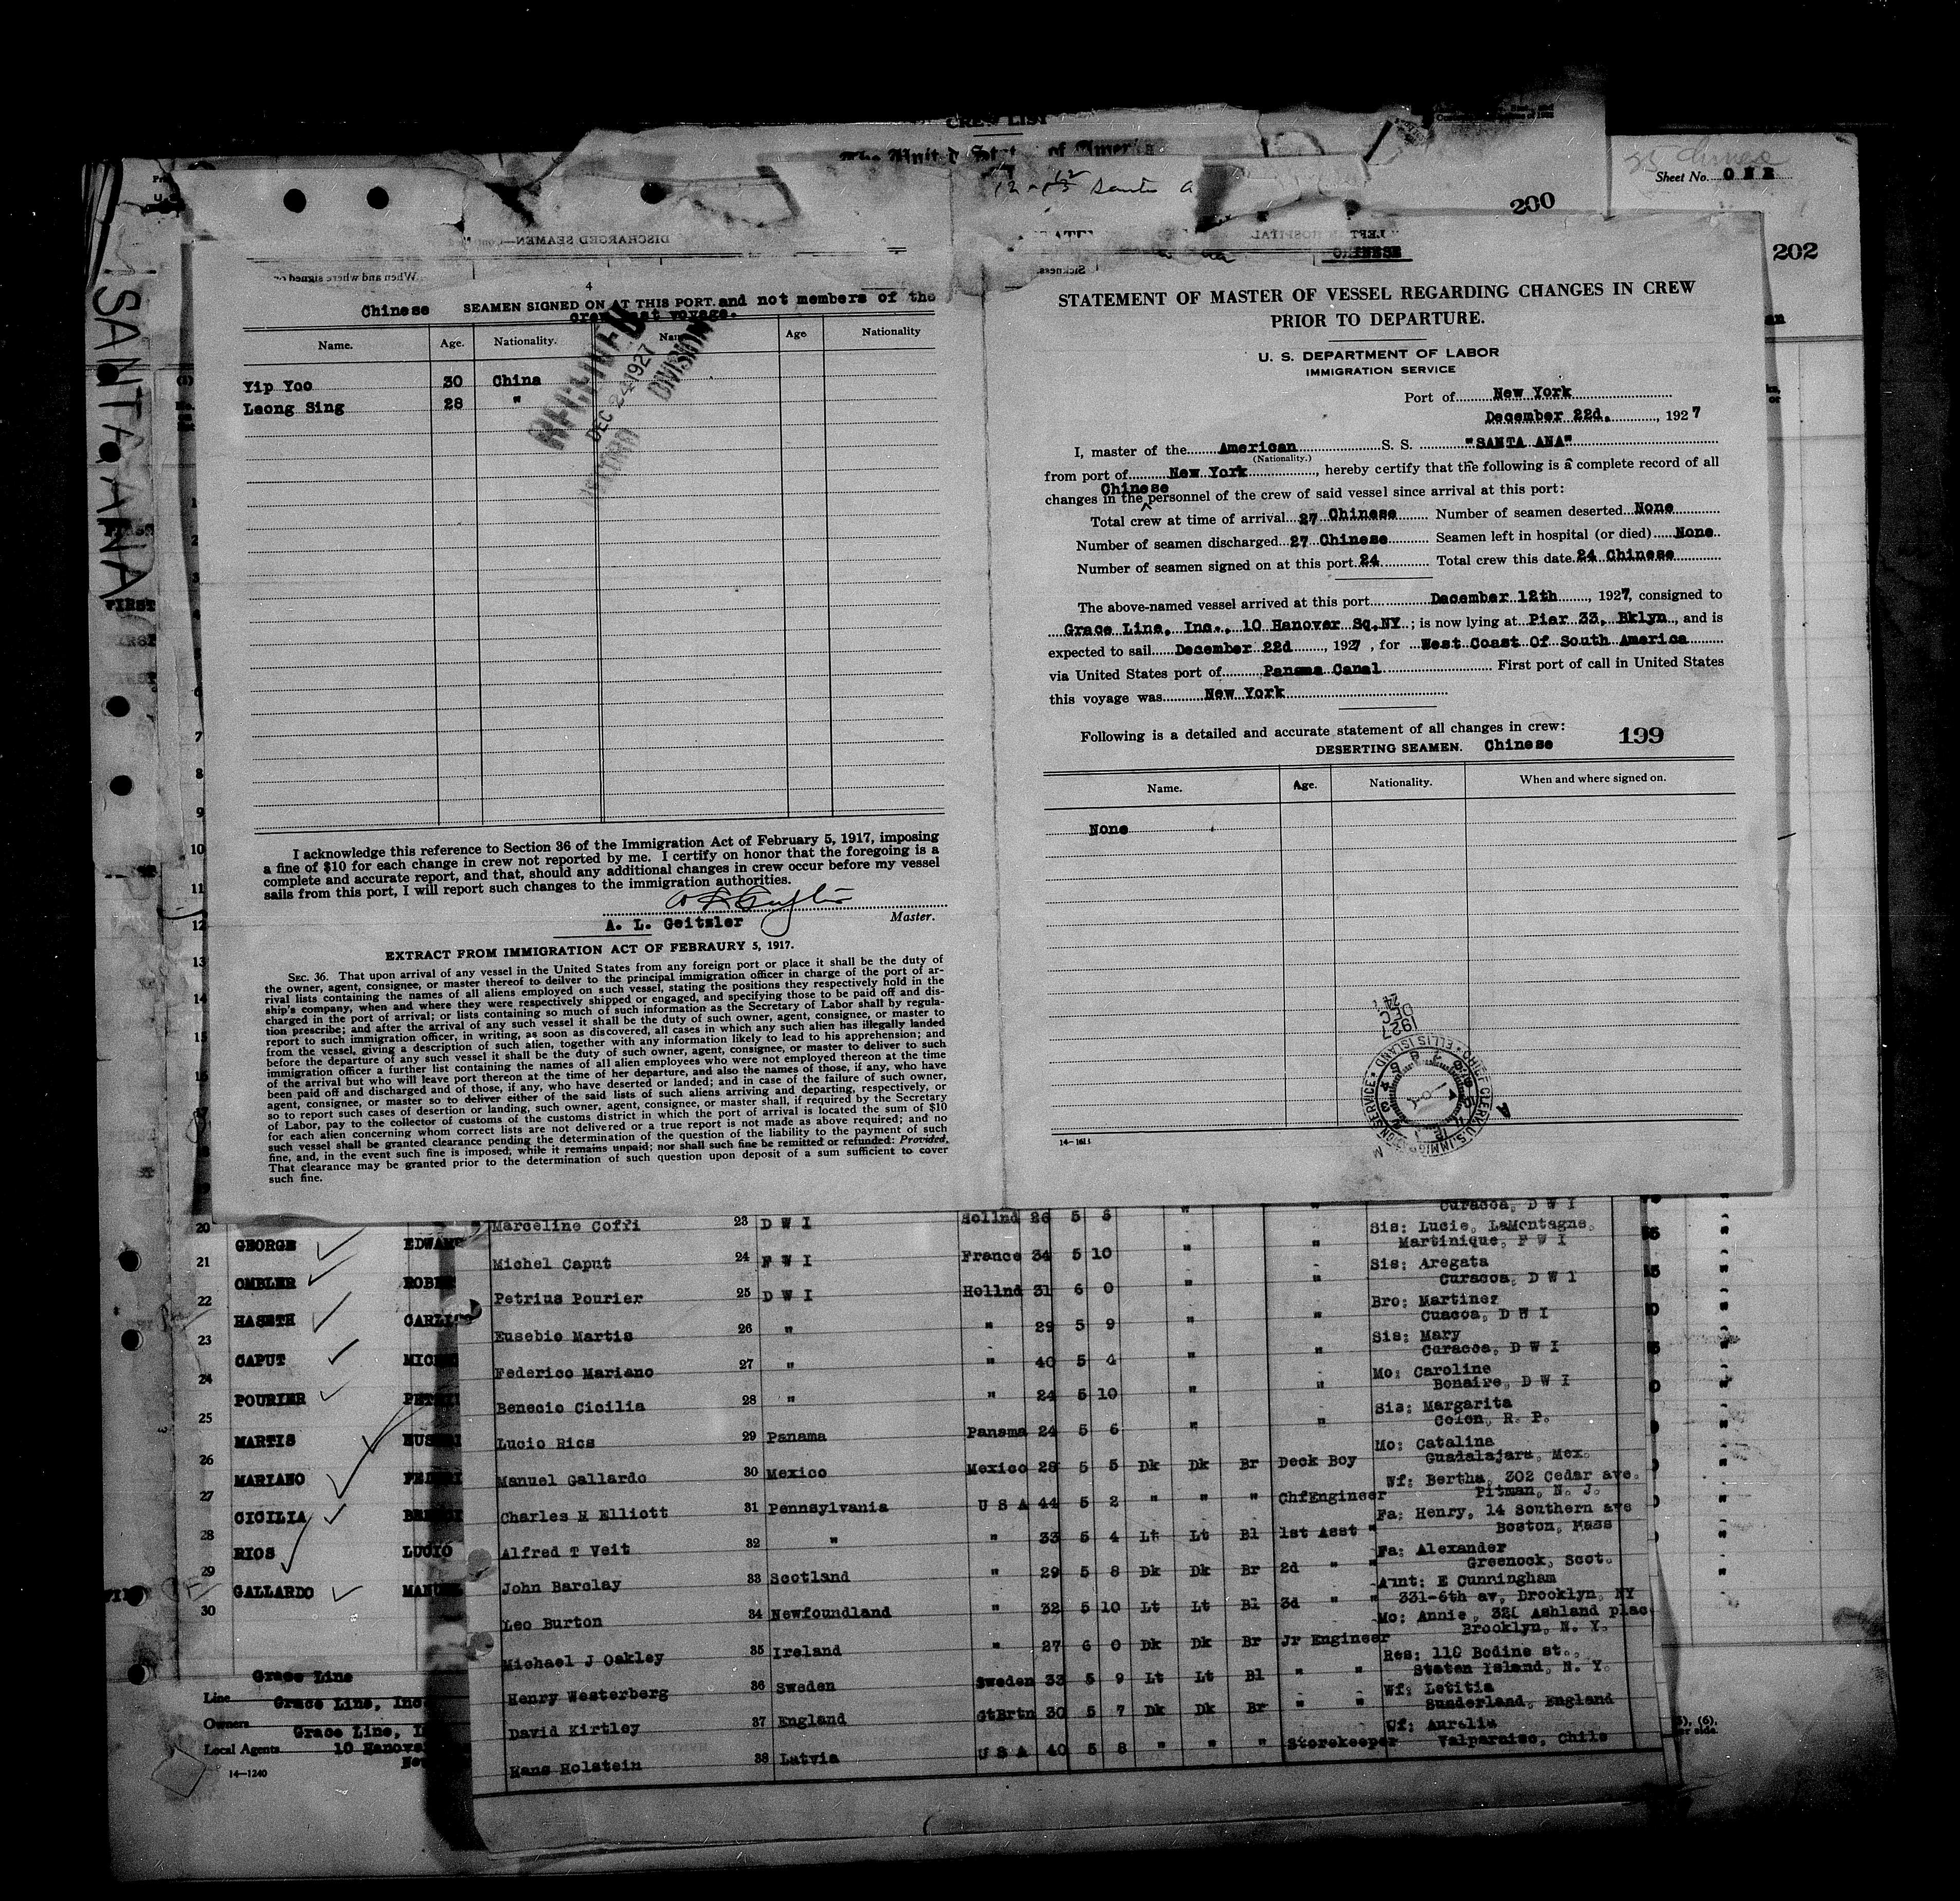 CREW LIST
The United States of America
Sheet No. ONE
200
202
SANTA ANA
DISCHARGED SEAMEN—
When and where signed on
4
Chinese SEAMEN SIGNED ON AT THIS PORT.and not members of the
crew last voyage.
Name. Age. Nationality. Name Age Nationality
Yip Yoo 30 China
Leong Sing 28 "
RECEIVED
DEC 24 1927
DIVISION
I acknowledge this reference to Section 36 of the Immigration Act of February 5, 1917, imposing
a fine of $10 for each change in crew not reported by me. I certify on honor that the foregoing is a
complete and accurate report, and that, should any additional changes in crew occur before my vessel
sails from this port, I will report such changes to the immigration authorities.
A. L. Geitzler Master.
EXTRACT FROM IMMIGRATION ACT OF FEBRAURY 5, 1917.
SEC. 36. That upon arrival of any vessel in the United States from any foreign port or place it shall be the duty of
the owner, agent, consignee, or master thereof to deilver to the principal immigration officer in charge of the port of ar-
rival lists containing the names of all aliens employed on such vessel, stating the positions they respectively hold in the
ship's company, when and where they were respectively shipped or engaged, and specifying those to be paid off and dis-
charged in the port of arrival; or lists containing so much of such information as the Secretary of Labor shall by regula-
tion prescribe; and after the arrival of any such vessel it shall be the duty of such owner, agent, consignee, or master to
report to such immigration officer, in writing, as soon as discovered, all cases in which any such alien has illegally landed
from the vessel, giving a description of such alien, together with any information likely to lead to his apprehension; and
before the departure of any such vessel it shall be the duty of such owner, agent, consignee, or master to deliver to such
immigration officer a further list containing the names of all alien employees who were not employed thereon at the time
of the arrival but who will leave port thereon at the time of her departure, and also the names of those, if any, who have
been paid off and discharged and of those, if any, who have deserted or landed; and in case of the failure of such owner,
agent, consignee, or master so to deliver either of the said lists of such aliens arriving and departing, respectively, or
so to report such cases of desertion or landing, such owner, agent, consignee, or master shall, if required by the Secretary
of Labor, pay to the collector of customs of the customs district in which the port of arrival is located the sum of $10
for each alien concerning whom correct lists are not delivered or a true report is not made as above required; and no
such vessel shall be granted clearance pending the determination of the question of the liability to the payment of such
fine, and, in the event such fine is imposed, while it remains unpaid; nor shall such fine be remitted or refunded: Provided,
That clearance may be granted prior to the determination of such question upon deposit of a sum sufficient to cover
such fine.
CHINESE
STATEMENT OF MASTER OF VESSEL REGARDING CHANGES IN CREW
PRIOR TO DEPARTURE.
U. S. DEPARTMENT OF LABOR
IMMIGRATION SERVICE
Port of New York
December 22d, , 1927
I, master of the American S. S. "SANTA ANA"
(Nationality.)
from port of New York , hereby certify that the following is a complete record of all
Chinese
changes in the personnel of the crew of said vessel since arrival at this port:
Total crew at time of arrival 27 Chinese Number of seamen deserted None
Number of seamen discharged 27 Chinese Seamen left in hospital (or died) None
Number of seamen signed on at this port 24 Total crew this date 24 Chinese
The above-named vessel arrived at this port December 12th , 1927, consigned to
Grace Line, Inc., 10 Hanover Sq,NY ; is now lying at Pier 33, Bklyn , and is
expected to sail December 22d , 1927 , for West Coast Of South America
via United States port of Panama Canal First port of call in United States
this voyage was New York
Following is a detailed and accurate statement of all changes in crew:
199
DESERTING SEAMEN. Chinese
Name. Age. Nationality. When and where signed on.
None
1927
DEC
24
CHIEF CLERK, U.S. IMMIGRATION SERVICE ELLIS ISLAND
Curacoa, D W I
Marceline Coffi 23 D W I Hollnd 26 5 8 " " Sis: Lucie, LaMontagne,
Martinique, F W I
Michel Caput 24 F W I France 34 5 10 " " Sis: Aregata
Curacoa, D W I
Petrius Pourier 25 D W I Hollnd 31 6 0 " " Bro: Martinez
Cuacoa, D W I
Eusebio Martis 26 " " 29 5 9 " " Sis: Mary
Curacoa, D W I
Federico Mariano 27 " " 40 5 4 " " Mo: Caroline
Bonaire, D W I
Benecio Cicilia 28 " " 24 5 10 " " Sis: Margarita
Colon, R. P.
Lucio Rios 29 Panama Panama 24 5 6 " " Mo: Catalina
Guadalajara, Mex.
Manuel Gallardo 30 Mexico Mexico 28 5 5 Dk Dk Br Deck Boy Wf: Bertha, 302 Cedar ave.
Pitman, N. J.
Charles H Elliott 31 Pennsylvania U S A 44 5 2 " " " ChfEngineer Fa: Henry, 14 Southern ave
Boston, Mass
Alfred T Veit 32 " " 33 5 4 Lt Lt Bl 1st Asst " Fa: Alexander
Greenock, Scot.
John Barclay 33 Scotland " 29 5 8 Dk Dk Br 2d " " Aunt: E Cunningham
331-6th av, Brooklyn, NY
Leo Burton 34 Newfoundland " 32 5 10 Lt Lt Bl 3d " " Mo: Annie, 321 Ashland plac
Brooklyn, N. Y.
Michael J Oakley 35 Ireland " 27 6 0 Dk Dk Br Jr Engineer Res: 110 Bodine st.,
Staten Island, N. Y.
Henry Westerberg 36 Sweden Sweden 33 5 9 Lt Lt Bl " " Wf: Letitia
Sunderland, England
David Kirtley 37 England GtBrtn 30 5 7 Dk Dk Br " " Wf: Aurelia
Valparaiso, Chile
Hans Holstein 38 Latvia U S A 40 5 8 " " " Storekeeper
20 GEORGE EDWARD
21 OMBLER
22 HASETH
23 CAPUT
24 POURIER
25 MARTIS
26 MARIANO
27 CICILIA
28 RIOS LUCIO
29 GALLARDO
30
Line Grace Line
Owners Grace Line, Inc
Local Agents Grace Line, I
10 Hanover
14—1240